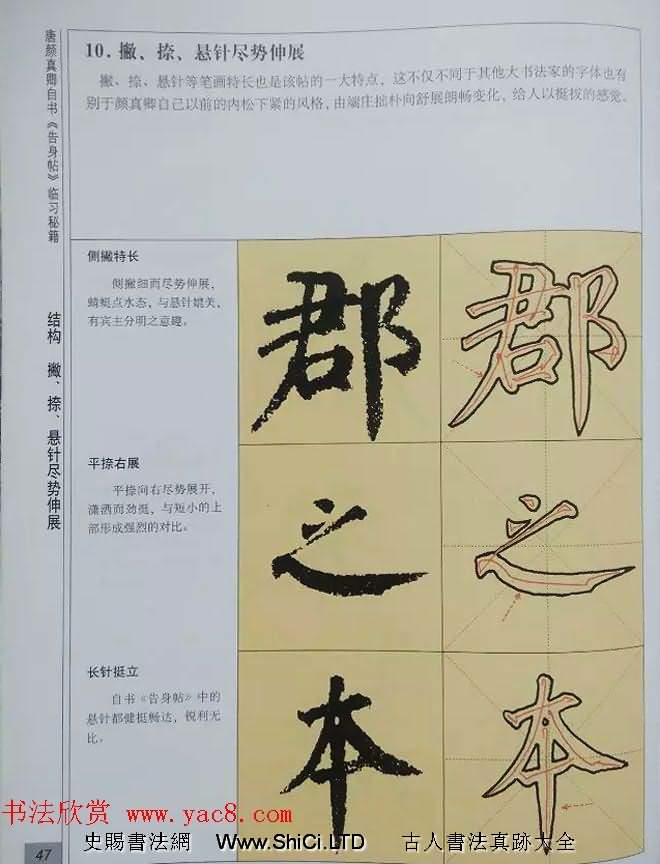 唐颜真卿自书《告身帖》临习秘籍
结构 撇、捺、悬针尽势伸展
10. 撇、捺、悬针尽势伸展
撇、捺、悬针等笔画特长也是该帖的一大特点，这不仅不同于其他大书法家的字体也有
别于颜真卿自己以前的内松下紧的风格，由端庄拙朴向舒展朗畅变化，给人以挺拔的感觉。
侧撇特长
侧撇细而尽势伸展，
蜻蜓点水态，与悬针媲美，
有宾主分明之意趣。
郡 郡
平捺右展
平捺向右尽势展开，
潇洒而劲挺，与短小的上
部形成强烈的对比。
之 之
长针挺立
自书《告身帖》中的
悬针都健挺畅达，锐利无
比。
本 本
书法欣赏 www.yac8.com
47
史賜書法網 Www.ShiCi.LTD 古人書法真跡大全